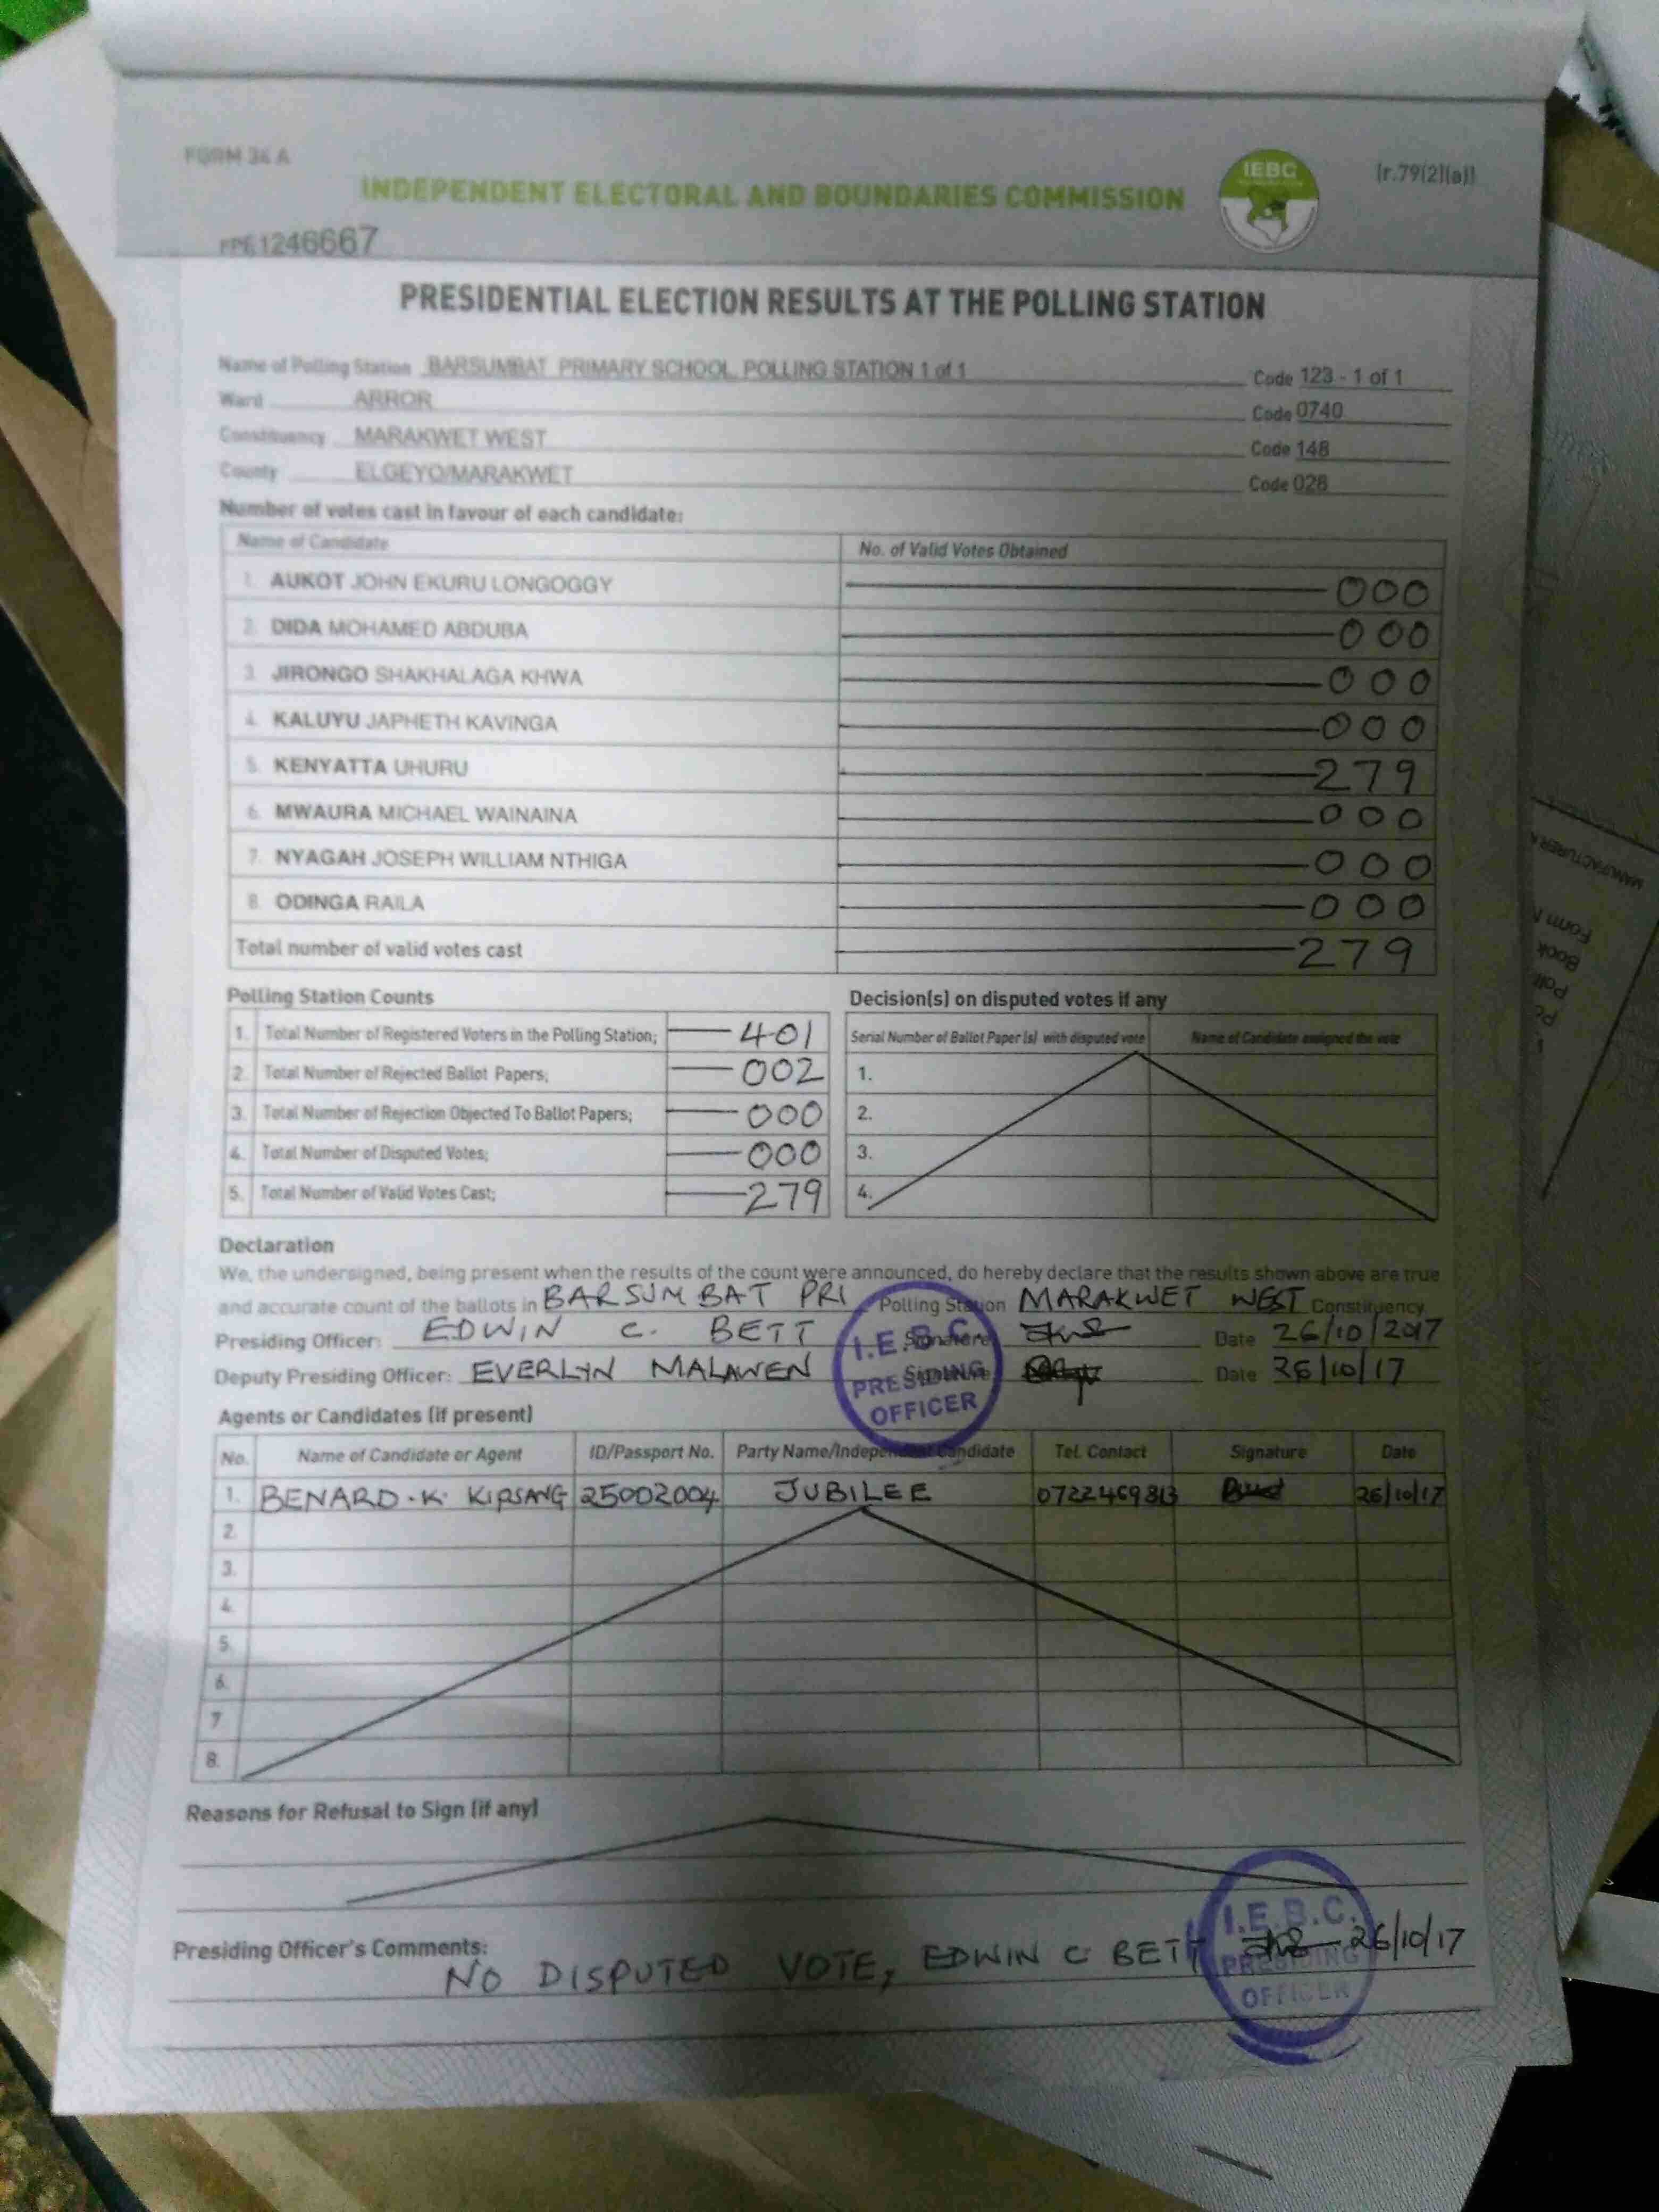 FORM 34 A
INDEPENDENT ELECTORAL AND BOUNDARIES COMMISSION
IEBC
(r.79(2)(a))
1246667
PRESIDENTIAL ELECTION RESULTS AT THE POLLING STATION
Name of Polling Station BARSUMBAT PRIMARY SCHOOL POLLING STATION 1 of 1 Code 123 - 1 of 1
Ward ARROR Code 0740
Constituency MARAKWET WEST Code 148
County ELGEYO/MARAKWET Code 028
Number of votes cast in favour of each candidate:
Name of Candidate No. of Valid Votes Obtained
1. AUKOT JOHN EKURU LONGOGGY 000
2. DIDA MOHAMED ABDUBA 000
3. JIRONGO SHAKHALAGA KHWA 000
4. KALUYU JAPHETH KAVINGA 000
5. KENYATTA UHURU 279
6. MWAURA MICHAEL WAINAINA 000
7. NYAGAH JOSEPH WILLIAM NTHIGA 000
8. ODINGA RAILA 000
Total number of valid votes cast 279
Polling Station Counts
1. Total Number of Registered Voters in the Polling Station; 401
2. Total Number of Rejected Ballot Papers; 002
3. Total Number of Rejection Objected To Ballot Papers; 000
4. Total Number of Disputed Votes; 000
5. Total Number of Valid Votes Cast; 279
Decision(s) on disputed votes if any
Serial Number of Ballot Paper (s) with disputed vote Name of Candidate assigned the vote
1.
2.
3.
4.
Declaration
We, the undersigned, being present when the results of the count were announced, do hereby declare that the results shown above are true
and accurate count of the ballots in BARSUMBAT PRI Polling Station MARAKWET WEST Constituency
Presiding Officer: EDWIN C. BETT Signature Date 26/10/2017
Deputy Presiding Officer: EVERLYN MALAWEN Signature Date 26/10/17
I.E.B.C
PRESIDING
OFFICER
Agents or Candidates (if present)
No. Name of Candidate or Agent ID/Passport No. Party Name/Independent Candidate Tel. Contact Signature Date
1. BENARD.K. KIPSANG 25002004 JUBILEE 0722469813 26/10/17
2.
3.
4.
5.
6.
7
8.
Reasons for Refusal to Sign (if any)
Presiding Officer's Comments:
NO DISPUTED VOTE, EDWIN C BETT 26/10/17
I.E.B.C.
PRESIDING
OFFICER
MANUFACTURER
Form
Book